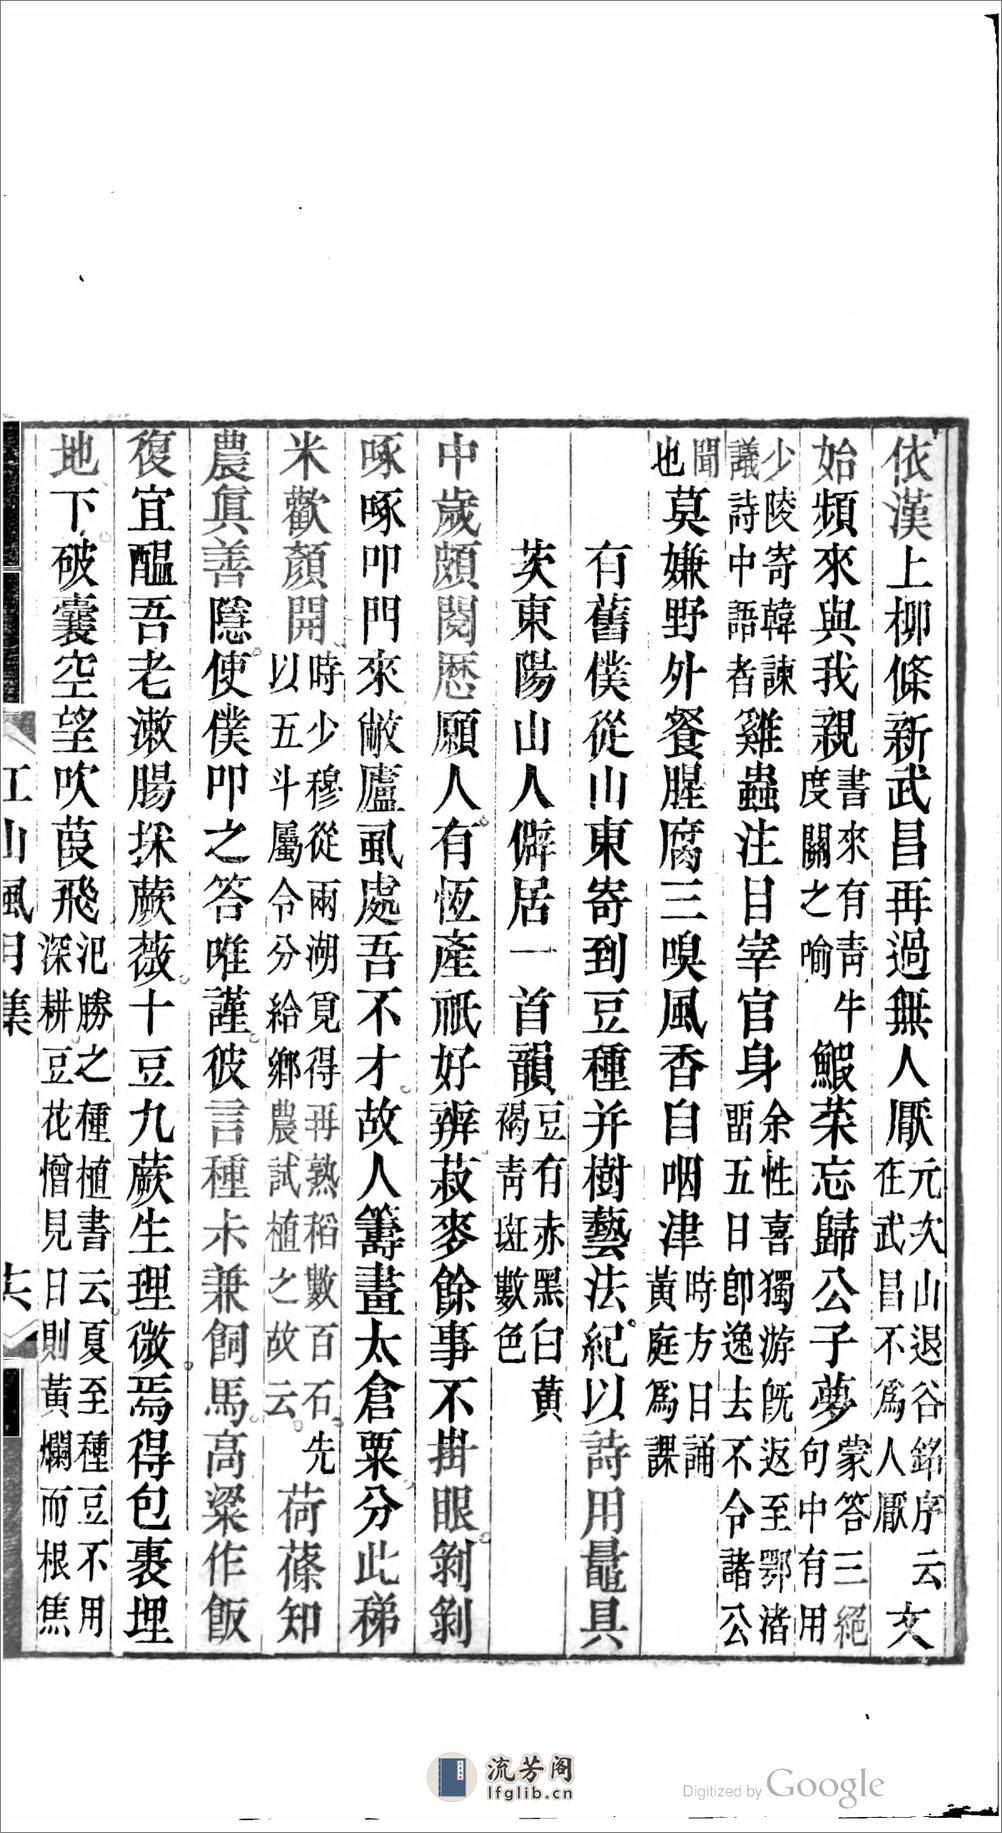 依漢上柳條新武昌再過無人厭元次山退谷銘序云在武昌不爲人厭文
始頻來與我親書來有青牛度關之喻鰕菜忘歸公子夢蒙答三絕句中有用
少陵寄韓諫議詩中語者雞蟲注目宰官身余性喜獨游旣返至鄂渚畱五日卽逸去不令諸公
聞也莫嫌野外餐腥腐三嗅風香自咽津時方日誦黃庭爲課
有舊僕從山東寄到豆種并樹藝法紀以詩用鼂具
茨東陽山人僻居一首韻豆有赤黑白黃褐青斑數色
中歲頗閱歷願人有恆產祇好辨菽麥餘事不掛眼剝剝
啄啄叩門來敝廬虱處吾不才故人籌畫太倉粟分此稊
米歡顏開時少穆從兩湖覓得再熟稻數百石先以五斗屬令分給鄉農試植之故云荷蓧知
農眞善隱使僕叩之答唯謹彼言種未兼飼馬高粱作飯
復宜醞吾老漱腸採蕨薇十豆九蕨生理微焉得包裹埋
地下破囊空望吹葭飛氾勝之種植書云夏至種豆不用深耕豆花憎見日則黃爛而根焦
江山風月集
共
流芳阁
lfglib.cn
Digitized by Google